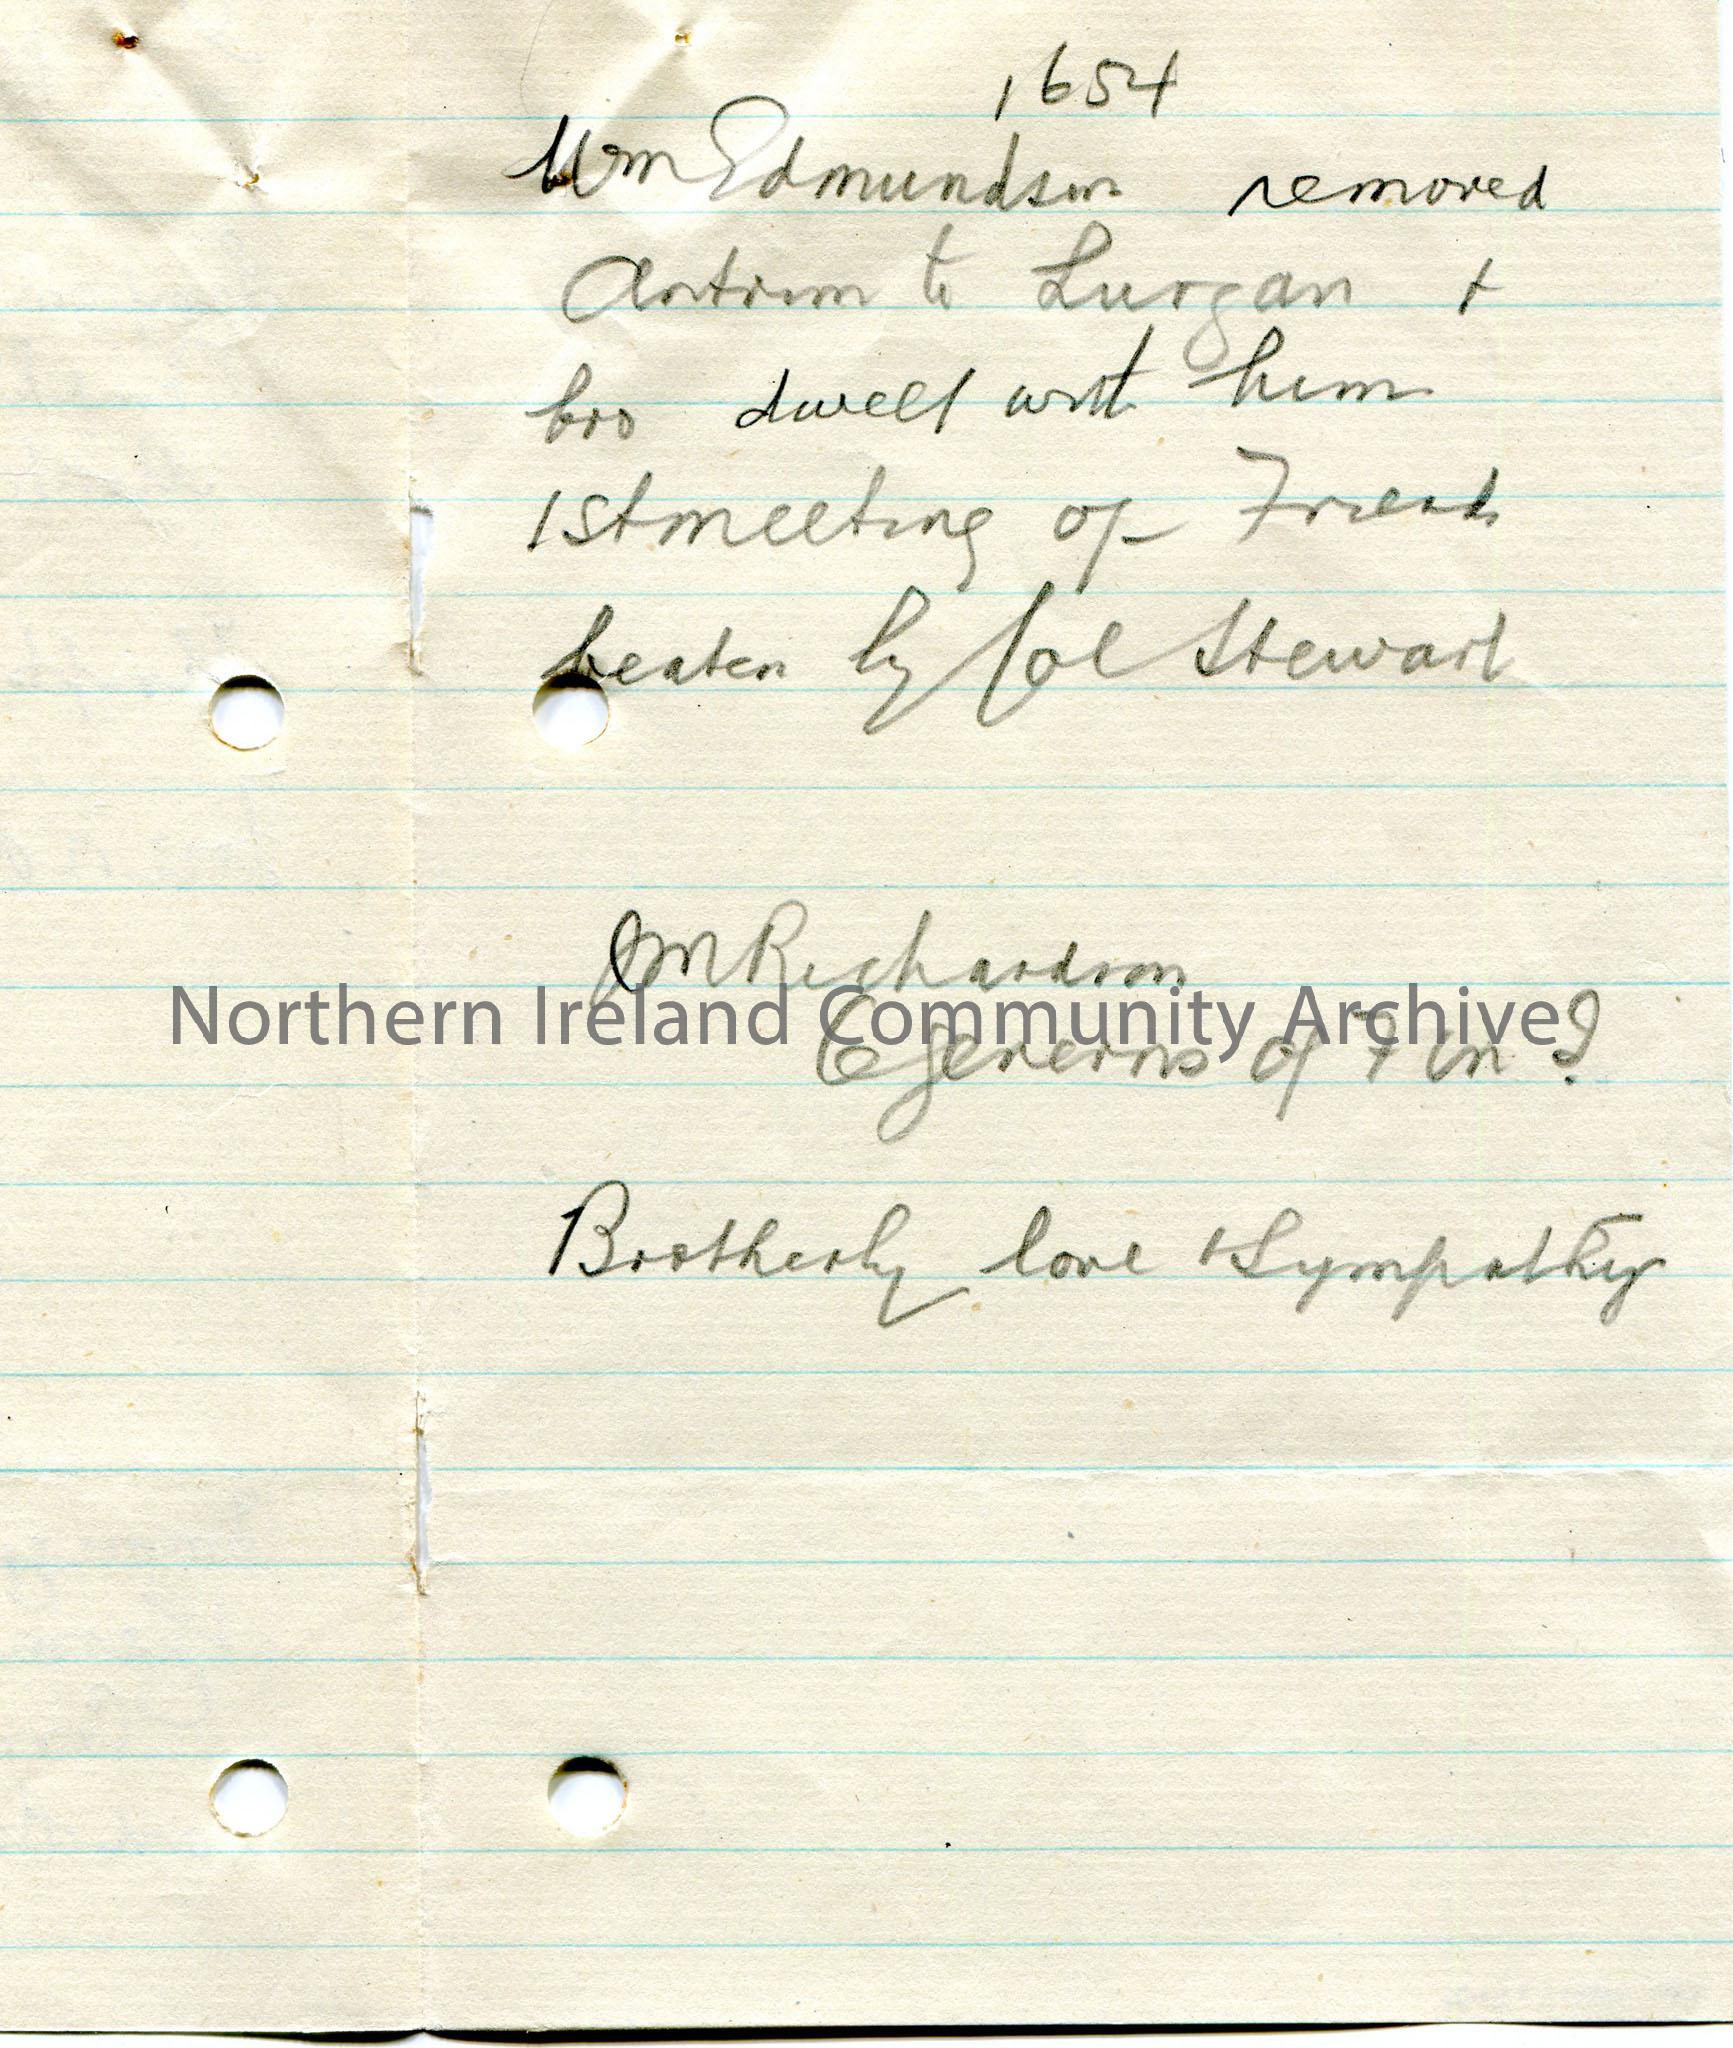 1654
Wm Edmundson removed
Antrim to Lurgan +
bro dwelt with him
1st meeting of Friends
beaten by Col Stewart
JM Richardson
Northern Ireland Community Archive
6 generns of F in ?
Brotherly love + Sympathy